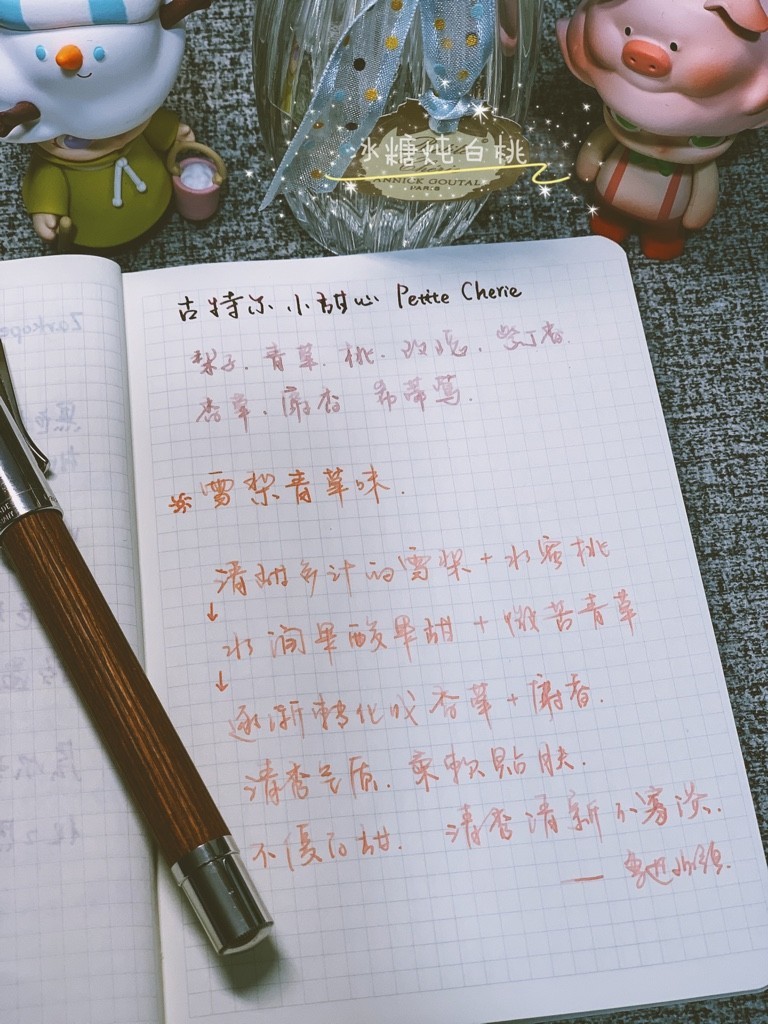 冰糖炖白桃
ANNICK GOUTAL
PARIS
古特尔小甜心 Petite Cherie
梨子、青草、桃、玫瑰、紫丁香、
香草、麝香 希蒂莺
※雪梨青草味.
清甜多汁的雪梨+水蜜桃
↓
水润果酸果甜+微苦青草
↓
逐渐转化成香草+麝香.
清香气质.柔软贴肤.
不傻白甜. 清香清新不寡淡.